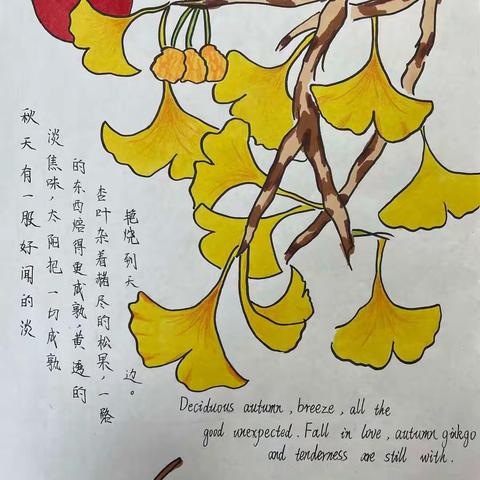 秋天有一股好闻的淡
淡焦味，太阳把一切成熟
的东西焙得更成熟，黄透的
杏叶杂着赭尽的松果，一路
艳烧到天边。
Deciduous autumn, breeze, all the
good unexpected. Fall in love, autumn ginkgo
and tenderness are still with.